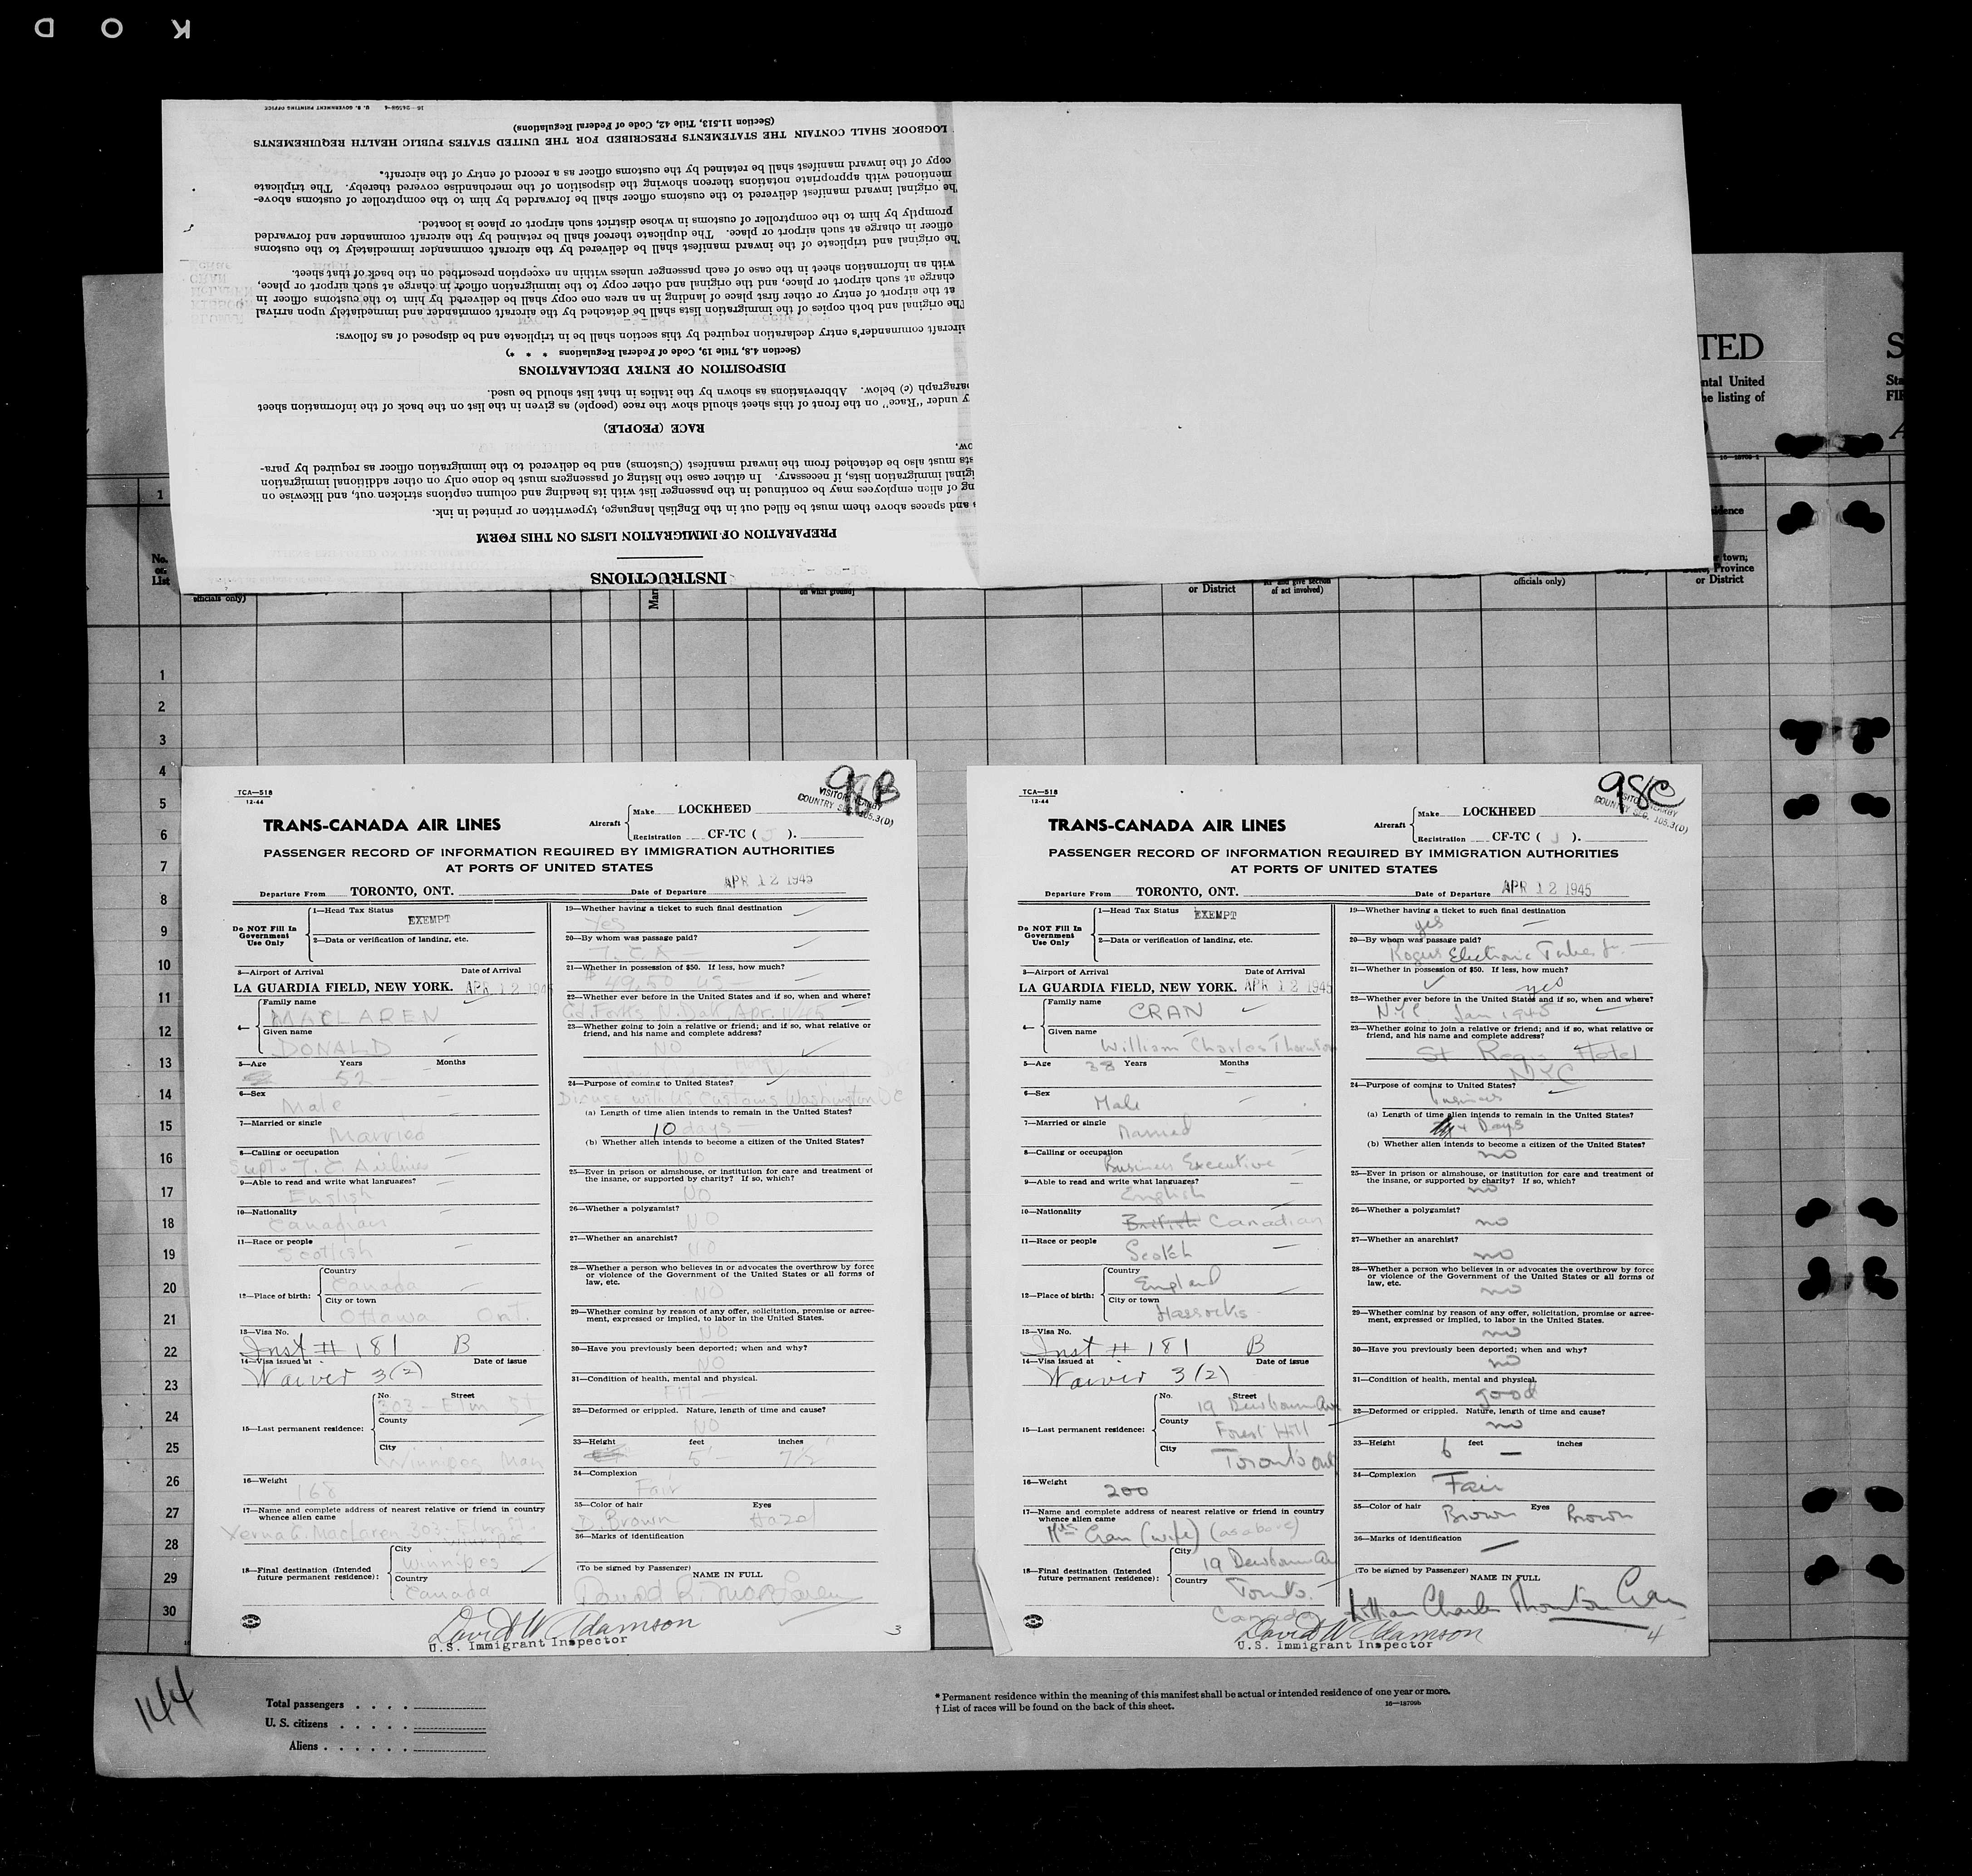 K O D
16—24598-4 U. S. GOVERNMENT PRINTING OFFICE
INSTRUCTIONS
PREPARATION OF IMMIGRATION LISTS ON THIS FORM
and spaces above them must be filled out in the English language, typewritten or printed in ink.
ng of alien employees may be continued in the passenger list with its heading and column captions stricken out, and likewise on
ginal immigration lists, if necessary. In either case the listing of passengers must be done only on other additional immigration
sts must also be detached from the inward manifest (Customs) and be delivered to the immigration officer as required by para-
ow.
RACE (PEOPLE)
y under "Race" on the front of this sheet should show the race (people) as given in the list on the back of the information sheet
paragraph (c) below. Abbreviations as shown by the italics in that list should be used.
DISPOSITION OF ENTRY DECLARATIONS
(Section 4.8, Title 19, Code of Federal Regulations * * *)
aircraft commander's entry declaration required by this section shall be in triplicate and be disposed of as follows:
The original and both copies of the immigration lists shall be detached by the aircraft commander and immediately upon arrival
at the airport of entry or other first place of landing in an area one copy shall be delivered by him to the customs officer in
charge at such airport or place, and the original and other copy to the immigration officer in charge at such airport or place,
with an information sheet in the case of each passenger unless within an exception prescribed on the back of that sheet.
The original and triplicate of the inward manifest shall be delivered by the aircraft commander immediately to the customs
officer in charge at such airport or place. The duplicate thereof shall be retained by the aircraft commander and forwarded
promptly by him to the comptroller of customs in whose district such airport or place is located.
The original inward manifest delivered to the customs officer shall be forwarded by him to the comptroller of customs above-
mentioned with appropriate notations thereon showing the disposition of the merchandise covered thereby. The triplicate
copy of the inward manifest shall be retained by the customs officer as a record of entry of the aircraft.
LOGBOOK SHALL CONTAIN THE STATEMENTS PRESCRIBED FOR THE UNITED STATES PUBLIC HEALTH REQUIREMENTS
(Section 11.513, Title 42, Code of Federal Regulations)
TED
S
ntal United
he listing of
Sta
FIR
1
No.
on
List
officials only)
or District
of act involved)
officials only)
town;
State, Province
or District
1
2
3
4
5
6
7
8
9
10
11
12
13
14
15
16
17
18
19
20
21
22
23
24
25
26
27
28
29
30
TCA—518
12-44
98B
VISITOR NEARBY
COUNTRY SEC. 105.3(D)
TRANS-CANADA AIR LINES
Aircraft
Make LOCKHEED
Registration CF-TC ( J ).
PASSENGER RECORD OF INFORMATION REQUIRED BY IMMIGRATION AUTHORITIES
AT PORTS OF UNITED STATES
Departure From TORONTO, ONT. Date of Departure APR 12 1945
Do NOT Fill In
Government
Use Only
1—Head Tax Status EXEMPT
2—Data or verification of landing, etc.
3—Airport of Arrival Date of Arrival
LA GUARDIA FIELD, NEW YORK. APR 12 1945
4—
Family name
MACLAREN
Given name
DONALD
5—Age Years Months
52
6—Sex
Male
7—Married or single
Married
8—Calling or occupation
Supt. T. C Airlines
9—Able to read and write what languages?
English
10—Nationality
Canadian
11—Race or people
Scottish
12—Place of birth:
Country
Canada
City or town
Ottawa Ont.
13—Visa No.
Inst # 181 B
14—Visa issued at Date of issue
Waiver 3(2)
15—Last permanent residence:
No. Street
303 - Elm St
County
City
Winnipeg Man
16—Weight
168
17—Name and complete address of nearest relative or friend in country
whence alien came
Verna G. MacLaren 303 - Elm St
Winnipeg
18—Final destination (Intended
future permanent residence):
City
Winnipeg
Country
Canada
19—Whether having a ticket to such final destination
Yes
20—By whom was passage paid?
T. C. A
21—Whether in possession of $50. If less, how much?
$49.50 US
22—Whether ever before in the United States and if so, when and where?
Gd. Forks N. Dak. Apr. 1945
23—Whether going to join a relative or friend; and if so, what relative or
friend, and his name and complete address?
NO
24—Purpose of coming to United States?
Discuss with US Customs Washington DC
(a) Length of time alien intends to remain in the United States?
10 days
(b) Whether alien intends to become a citizen of the United States?
NO
25—Ever in prison or almshouse, or institution for care and treatment of
the insane, or supported by charity? If so, which?
NO
26—Whether a polygamist?
NO
27—Whether an anarchist?
NO
28—Whether a person who believes in or advocates the overthrow by force
or violence of the Government of the United States or all forms of
law, etc.
NO
29—Whether coming by reason of any offer, solicitation, promise or agree-
ment, expressed or implied, to labor in the United States.
NO
30—Have you previously been deported; when and why?
NO
31—Condition of health, mental and physical.
Fit
32—Deformed or crippled. Nature, length of time and cause?
NO
33—Height feet inches
5 7½
34—Complexion
Fair
35—Color of hair Eyes
D. Brown Hazel
36—Marks of identification
(To be signed by Passenger) NAME IN FULL
Donald R. MacLaren
David W Adamson
U.S. Immigrant Inspector
3
TCA—518
12-44
98C
VISITOR NEARBY
COUNTRY SEC. 105.3(D)
TRANS-CANADA AIR LINES
Aircraft
Make LOCKHEED
Registration CF-TC ( J ).
PASSENGER RECORD OF INFORMATION REQUIRED BY IMMIGRATION AUTHORITIES
AT PORTS OF UNITED STATES
Departure From TORONTO, ONT. Date of Departure APR 12 1945
Do NOT Fill In
Government
Use Only
1—Head Tax Status EXEMPT
2—Data or verification of landing, etc.
3—Airport of Arrival Date of Arrival
LA GUARDIA FIELD, NEW YORK. APR 12 1945
4—
Family name
CRAN
Given name
William Charles Thornton
5—Age 38 Years Months
6—Sex
Male
7—Married or single
Married
8—Calling or occupation
Business Executive
9—Able to read and write what languages?
English
10—Nationality
British Canadian
11—Race or people
Scotch
12—Place of birth:
Country
England
City or town
Hassocks
13—Visa No.
Inst # 181 B
14—Visa issued at Date of issue
Waiver 3(2)
15—Last permanent residence:
No. Street
19 Dewbourne Ave
County
Forest Hill
City
Toronto Ont
16—Weight
200
17—Name and complete address of nearest relative or friend in country
whence alien came
Mrs. Cran (wife) (as above)
18—Final destination (Intended
future permanent residence):
City
19 Dewbourne Av
Country
Toronto.
Canada
19—Whether having a ticket to such final destination
yes
20—By whom was passage paid?
Rogers Electronic Tubes
21—Whether in possession of $50. If less, how much?
yes
22—Whether ever before in the United States and if so, when and where?
NYC. Jan 1945
23—Whether going to join a relative or friend; and if so, what relative or
friend, and his name and complete address?
St Regis Hotel
NYC
24—Purpose of coming to United States?
business
(a) Length of time alien intends to remain in the United States?
4 Days
(b) Whether alien intends to become a citizen of the United States?
no
25—Ever in prison or almshouse, or institution for care and treatment of
the insane, or supported by charity? If so, which?
no
26—Whether a polygamist?
no
27—Whether an anarchist?
no
28—Whether a person who believes in or advocates the overthrow by force
or violence of the Government of the United States or all forms of
law, etc.
no
29—Whether coming by reason of any offer, solicitation, promise or agree-
ment, expressed or implied, to labor in the United States.
no
30—Have you previously been deported; when and why?
no
31—Condition of health, mental and physical.
good
32—Deformed or crippled. Nature, length of time and cause?
no
33—Height 6 feet — inches
34—Complexion
Fair
35—Color of hair Eyes
Brown Brown
36—Marks of identification
—
(To be signed by Passenger) NAME IN FULL
William Charles Thornton Cran
David W Adamson
U.S. Immigrant Inspector
4
144
Total passengers . . . .
U. S. citizens . . . . .
Aliens . . . . . .
* Permanent residence within the meaning of this manifest shall be actual or intended residence of one year or more.
† List of races will be found on the back of this sheet.
16—18709b